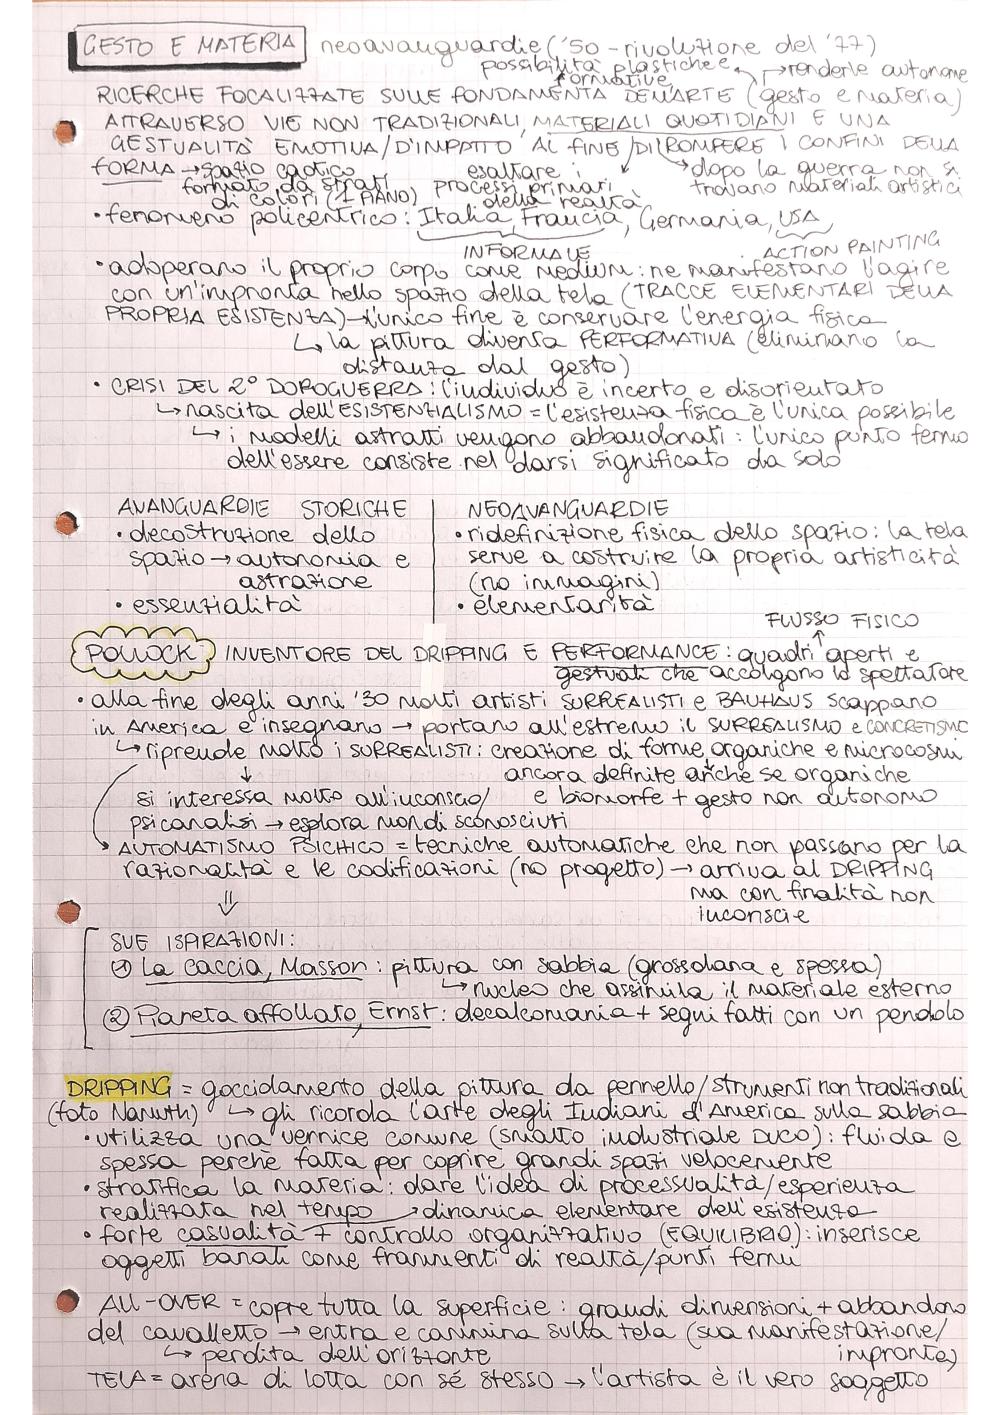 GESTO E MATERIA neoavanguardie ('50 - rivoluzione del '77)
possibilità plastiche e formative
→ renderle autonome
RICERCHE FOCALIZZATE SULLE FONDAMENTA DELL'ARTE (gesto e materia)
ATTRAVERSO VIE NON TRADIZIONALI, MATERIALI QUOTIDIANI E UNA
GESTUALITÀ EMOTIVA/D'IMPATTO AL FINE DI ROMPERE I CONFINI DELLA
FORMA → spazio caotico formato da strati di colori (1 PIANO)
esaltare i processi primari della realtà
→ dopo la guerra non si trovano materiali artistici
• fenomeno policentrico: Italia, Francia, Germania, USA
INFORMALE ACTION PAINTING
• adoperano il proprio corpo come medium: ne manifestano l'agire
con un'impronta nello spazio della tela (TRACCE ELEMENTARI DELLA
PROPRIA ESISTENZA) → l'unico fine è conservare l'energia fisica
↳ la pittura diventa PERFORMATIVA (eliminano la
distanza dal gesto)
• CRISI DEL 2° DOPOGUERRA: l'individuo è incerto e disorientato
↳ nascita dell'ESISTENZIALISMO = l'esistenza fisica è l'unica possibile
↳ i modelli astratti vengono abbandonati: l'unico punto fermo
dell'essere consiste nel darsi significato da solo
AVANGUARDIE STORICHE
• decostruzione dello
spazio → autonomia e
astrazione
• essenzialità
NEOAVANGUARDIE
• ridefinizione fisica dello spazio: la tela
serve a costruire la propria artisticità
(no immagini)
• elementarità
FLUSSO FISICO
POLLOCK INVENTORE DEL DRIPPING E PERFORMANCE: quadri aperti e
gestuali che accolgono lo spettatore
• alla fine degli anni '30 molti artisti SURREALISTI e BAUHAUS scappano
in America e insegnano → portano all'estremo il SURREALISMO e CONCRETISMO
↳ riprende molto i SURREALISTI: creazione di forme organiche e microcosmi
ancora definite anche se organiche
e biomorfe + gesto non autonomo
↓
si interessa molto all'inconscio/
psicanalisi → esplora mondi sconosciuti
AUTOMATISMO PSICHICO = tecniche automatiche che non passano per la
razionalità e le codificazioni (no progetto) → arriva al DRIPPING
ma con finalità non
inconscie
⇓
SUE ISPIRAZIONI:
① La caccia, Masson: pittura con sabbia (grossolana e spessa)
↳ nucleo che assimila il materiale esterno
② Pianeta affollato, Ernst: decalcomania + segni fatti con un pendolo
DRIPPING = gocciolamento della pittura da pennello/strumenti non tradizionali
(foto Namuth) ↳ gli ricorda l'arte degli Indiani d'America sulla sabbia
• utilizza una vernice comune (smalto industriale DUCO): fluida e
spessa perchè fatta per coprire grandi spazi velocemente
• stratifica la materia: dare l'idea di processualità/esperienza
realizzata nel tempo → dinamica elementare dell'esistenza
• forte casualità + controllo organizzativo (EQUILIBRIO): inserisce
oggetti banali come frammenti di realtà/punti fermi
ALL-OVER = copre tutta la superficie: grandi dimensioni + abbandono
del cavalletto → entra e cammina sulla tela (sua manifestazione/
impronte)
↳ perdita dell'orizzonte
TELA = arena di lotta con sé stesso → l'artista è il vero soggetto